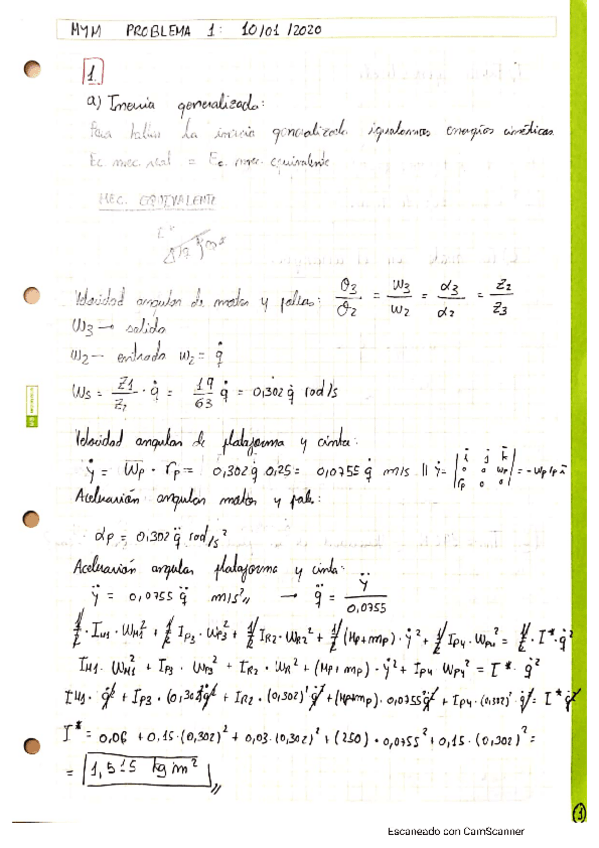 MYM PROBLEMA 1: 10/01/2020
1.
a) Inercia generalizada:
Para hallar la inercia generalizada igualamos energías cinéticas.
Ec mec. real = Ec. mec. equivalente
MEC. EQUIVALENTE
Velocidad angular de motor y poleas: θ3/θ2 = ω3/ω2 = α3/α2 = Z2/Z3
ω3 → salida
ω2 → entrada ω2 = q̇
ωs = Z1/Z2 · q̇ = 19/63 q̇ = 0,302 q̇ rad/s
Velocidad angular de plataforma y cinta:
ẏ = ωp · rp = 0,302 q̇ 0,25 = 0,0755 q̇ m/s || ẏ = |i j k; 0 0 ωp; rp 0 0| = -ωp rp
Aceleración angular motor y pole:
αp = 0,302 q̈ rad/s²
Aceleración angular plataforma y cinta:
ÿ = 0,0755 q̈ m/s² // → q̈ = ÿ/0,0755
1/2 · IM1 · ωM1² + 1/2 IP3 · ωP3² + 1/2 IR2 · ωR2² + 1/2 (Mp+mp) · ẏ² + 1/2 IP4 · ωP4² = 1/2 · I* · q̇²
IM1 · ωM1² + IP3 · ωP3² + IR2 · ωR² + (Mp+mp) · ẏ² + IP4 · ωP4² = I* · q̇²
IM1 · q̇² + IP3 · (0,302)² q̇² + IR2 · (0,302)² q̇² + (Mp+mp) · 0,0755² q̇² + IP4 · (0,302)² · q̇² = I* q̇²
I* = 0,06 + 0,15 · (0,302)² + 0,03 · (0,302)² + (250) · 0,0755² + 0,15 · (0,302)² =
= 1,515 kg m² //
1
Escaneado con CamScanner